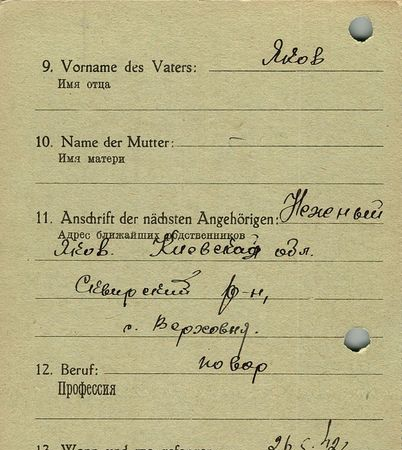 9. Vorname des Vaters: Яков
Имя отца
10. Name der Mutter: —
Имя матери
11. Anschrift der nächsten Angehörigen: Неженый
Адрес ближайших родственников
Яков. Киевская обл.
Сквирский р-н,
с. Верховня.
12. Beruf: повар
Профессия
26.5.42